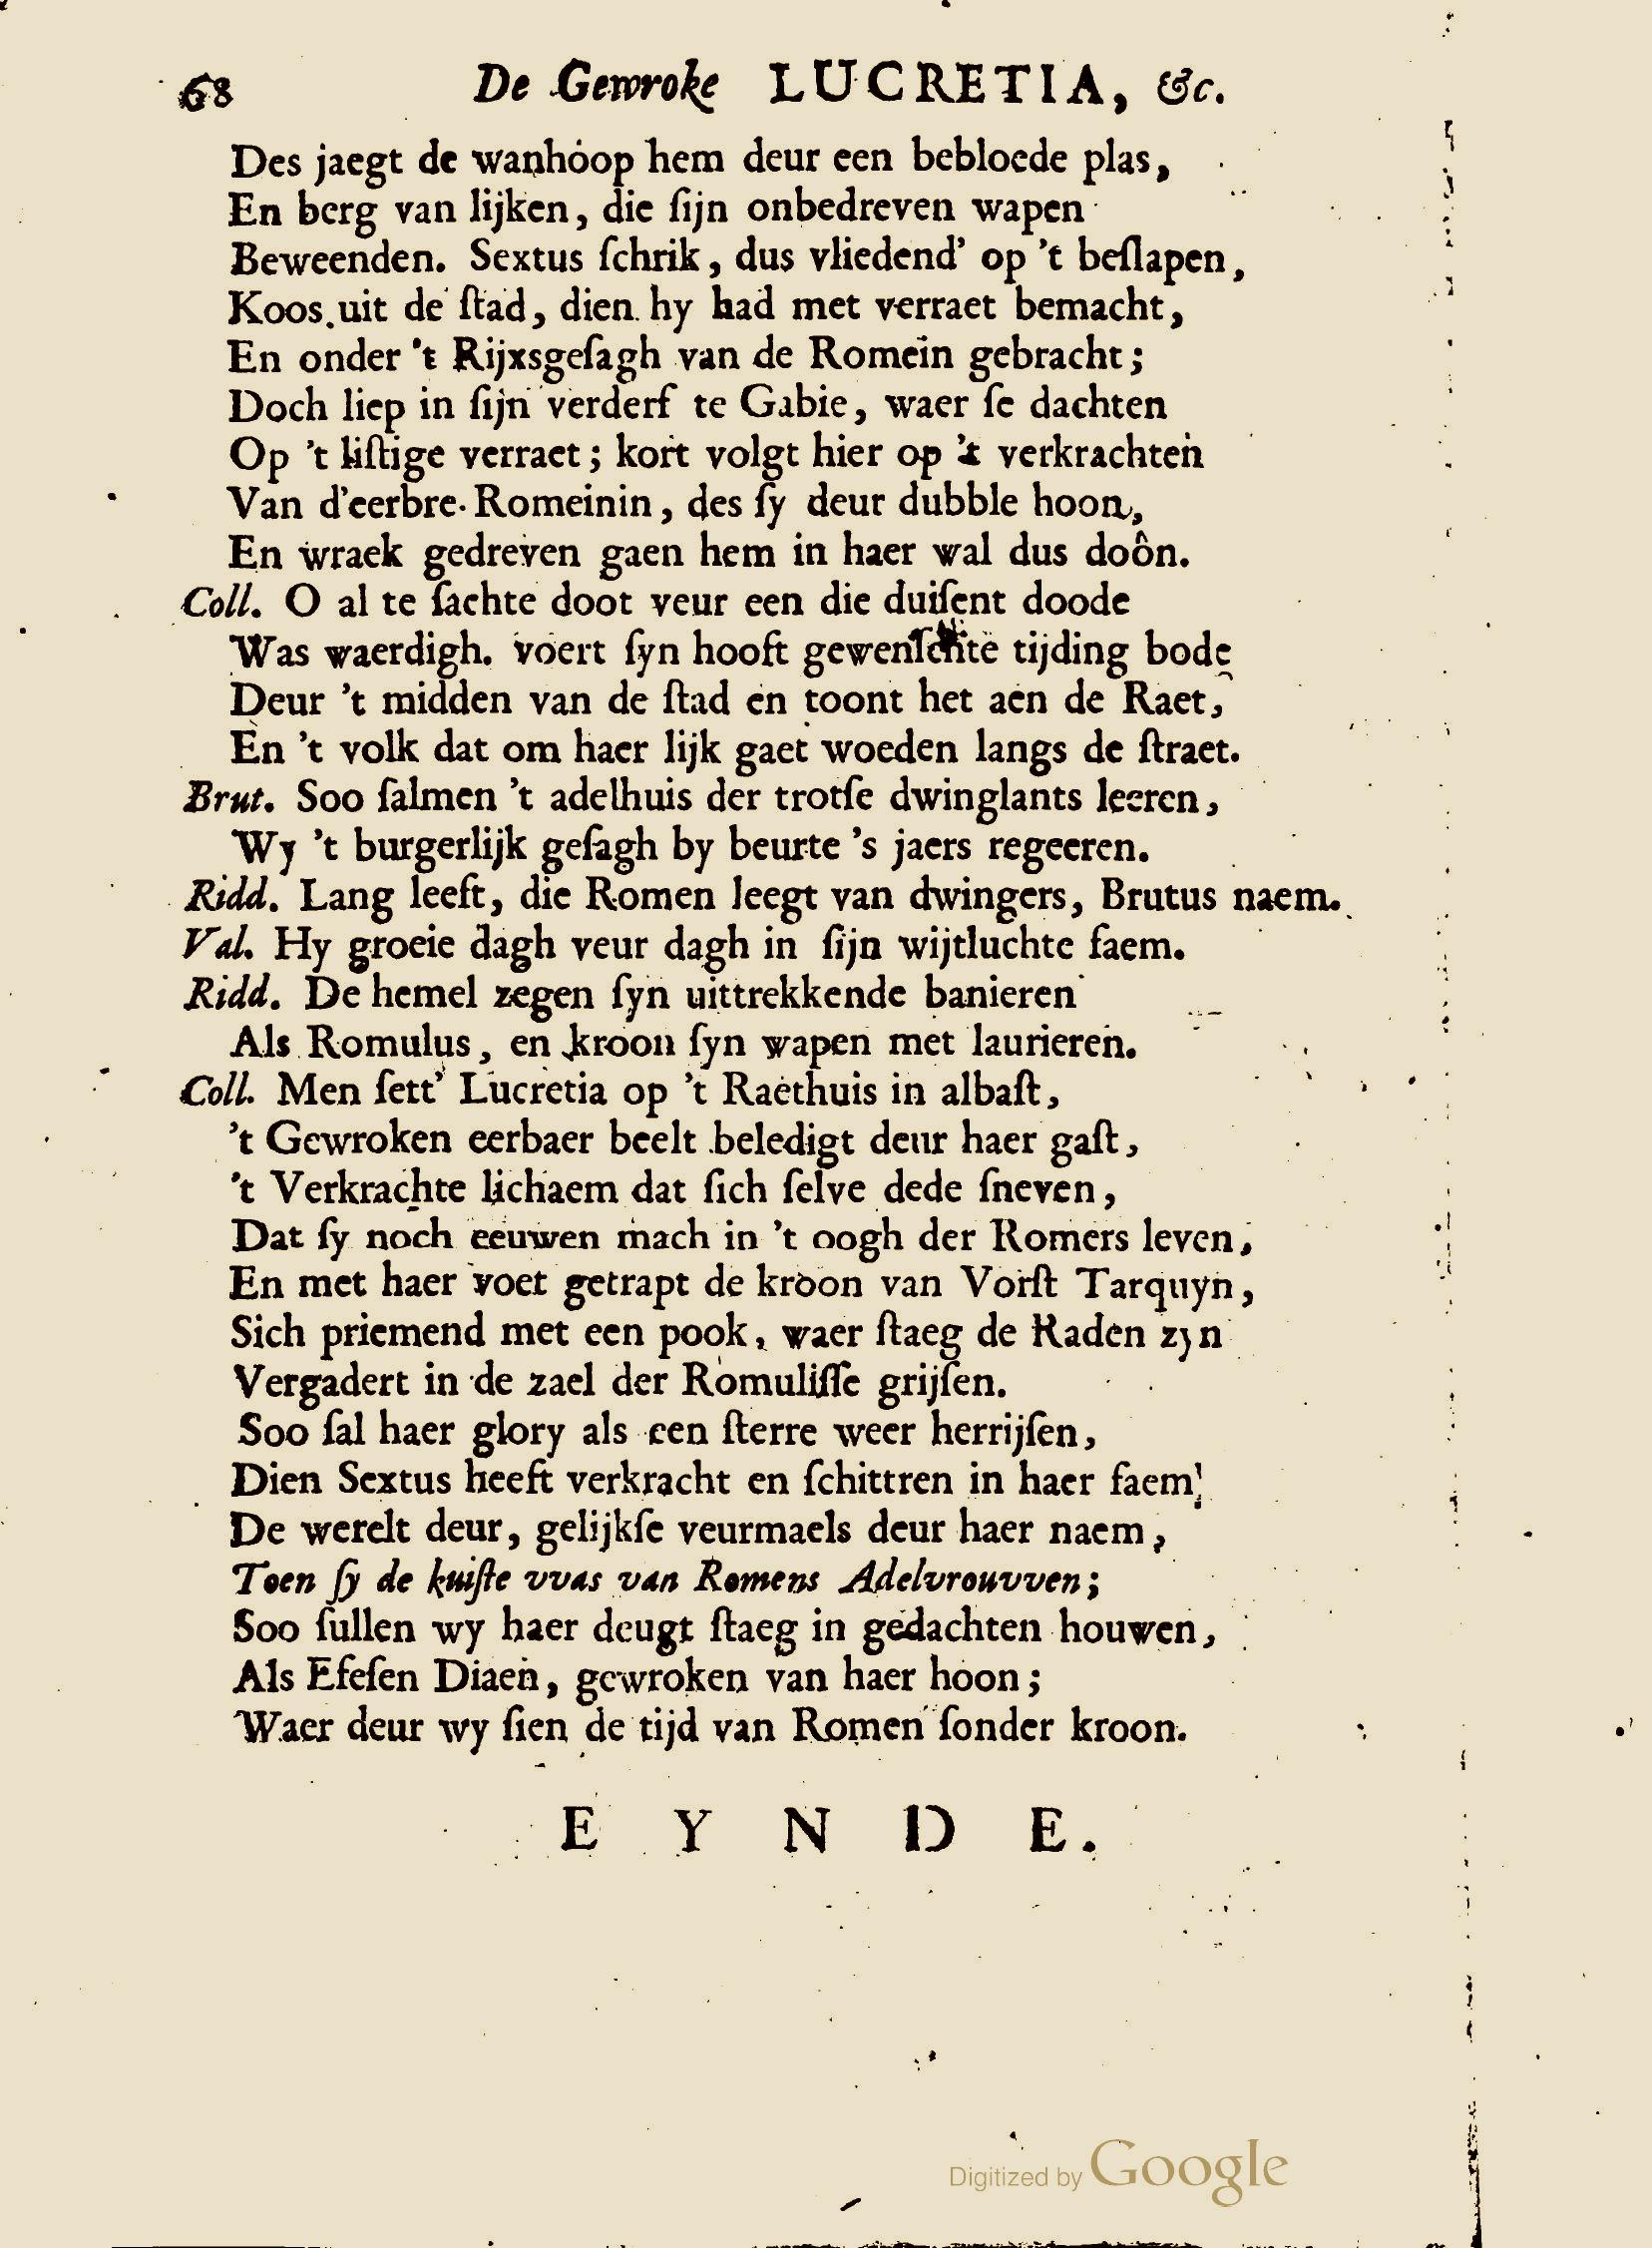 68 De Gewroke LUCRETIA, &c.
Des jaegt de wanhoop hem deur een bebloede plas,
En berg van lijken, die ſijn onbedreven wapen
Beweenden. Sextus ſchrik, dus vliedend' op 't beſlapen,
Koos uit de ſtad, dien hy had met verraet bemacht,
En onder 't Rijxsgeſagh van de Romein gebracht;
Doch liep in ſijn verderf te Gabie, waer ſe dachten
Op 't liſtige verraet; kort volgt hier op 't verkrachten
Van d'eerbre Romeinin, des ſy deur dubble hoon,
En wraek gedreven gaen hem in haer wal dus doôn.
Coll. O al te ſachte doot veur een die duiſent doode
Was waerdigh. voert ſyn hooft gewenſchte tijding bode
Deur 't midden van de ſtad en toont het aen de Raet,
En 't volk dat om haer lijk gaet woeden langs de ſtraet.
Brut. Soo ſalmen 't adelhuis der trotſe dwinglants leeren,
Wy 't burgerlijk geſagh by beurte 's jaers regeeren.
Ridd. Lang leeft, die Romen leegt van dwingers, Brutus naem.
Val. Hy groeie dagh veur dagh in ſijn wijtluchte faem.
Ridd. De hemel zegen ſyn uittrekkende banieren
Als Romulus, en kroon ſyn wapen met laurieren.
Coll. Men ſett' Lucretia op 't Raethuis in albaſt,
't Gewroken eerbaer beelt beledigt deur haer gaſt,
't Verkrachte lichaem dat ſich ſelve dede ſneven,
Dat ſy noch eeuwen mach in 't oogh der Romers leven,
En met haer voet getrapt de kroon van Vorſt Tarquyn,
Sich priemend met een pook, waer ſtaeg de Raden zyn
Vergadert in de zael der Romuliſſe grijſen.
Soo ſal haer glory als een ſterre weer herrijſen,
Dien Sextus heeft verkracht en ſchittren in haer faem,
De werelt deur, gelijkſe veurmaels deur haer naem,
Toen ſy de kuiſte vvas van Romens Adelvrouvven;
Soo ſullen wy haer deugt ſtaeg in gedachten houwen,
Als Efeſen Diaen, gewroken van haer hoon;
Waer deur wy ſien de tijd van Romen ſonder kroon.
E Y N D E.
Digitized by Google